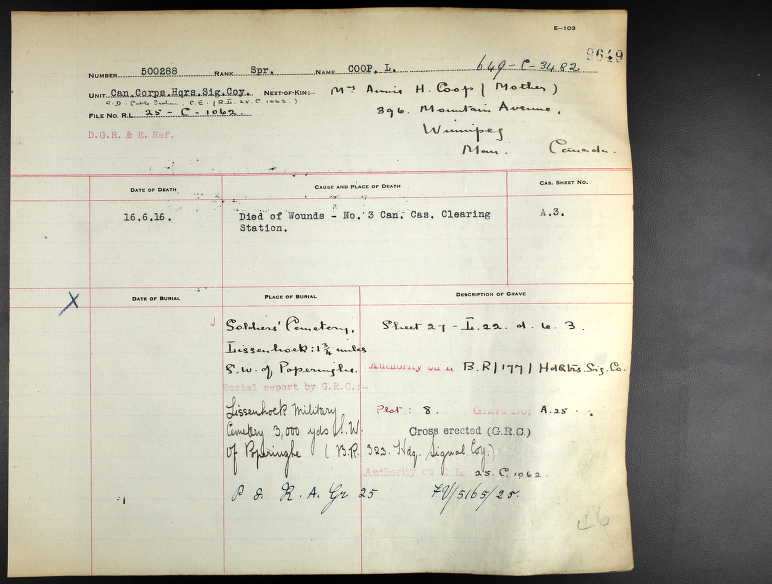 E-103
9649
NUMBER 500288 RANK Spr. NAME COOP, L. 649-C-3482
UNIT Can.Corps.Hqrs.Sig.Coy. NEXT-OF-KIN:- Mrs Annie H. Coop (Mother)
FILE NO. R.L. 25 - C - 1062. 396. Mountain Avenue,
Winnipeg
D.G.R. & E. Ref.
Man. Canada.
DATE OF DEATH CAUSE AND PLACE OF DEATH CAS. SHEET NO.
16.6.16. Died of Wounds - No. 3 Can. Cas. Clearing A.3.
Station.
X DATE OF BURIAL PLACE OF BURIAL DESCRIPTION OF GRAVE
Soldiers' Cemetery, Sheet 27 - L. 22. d. 6. 3.
Lissenhoek: 1¾ miles
S.W. of Poperinghe. Authority B.R/177/ Hdqtrs. Sig. Co.
Burial report by G.R.C:-
Lissenhoek Military Plot: 8. A.25
Cemetery 3,000 yds S.W. Cross erected (G.R.C.)
of Poperinghe (B.R. 323. Hdq. Signal Coy.)
Authority 25. C. 1062.
R. A. Gr 25 7V/5165/25.